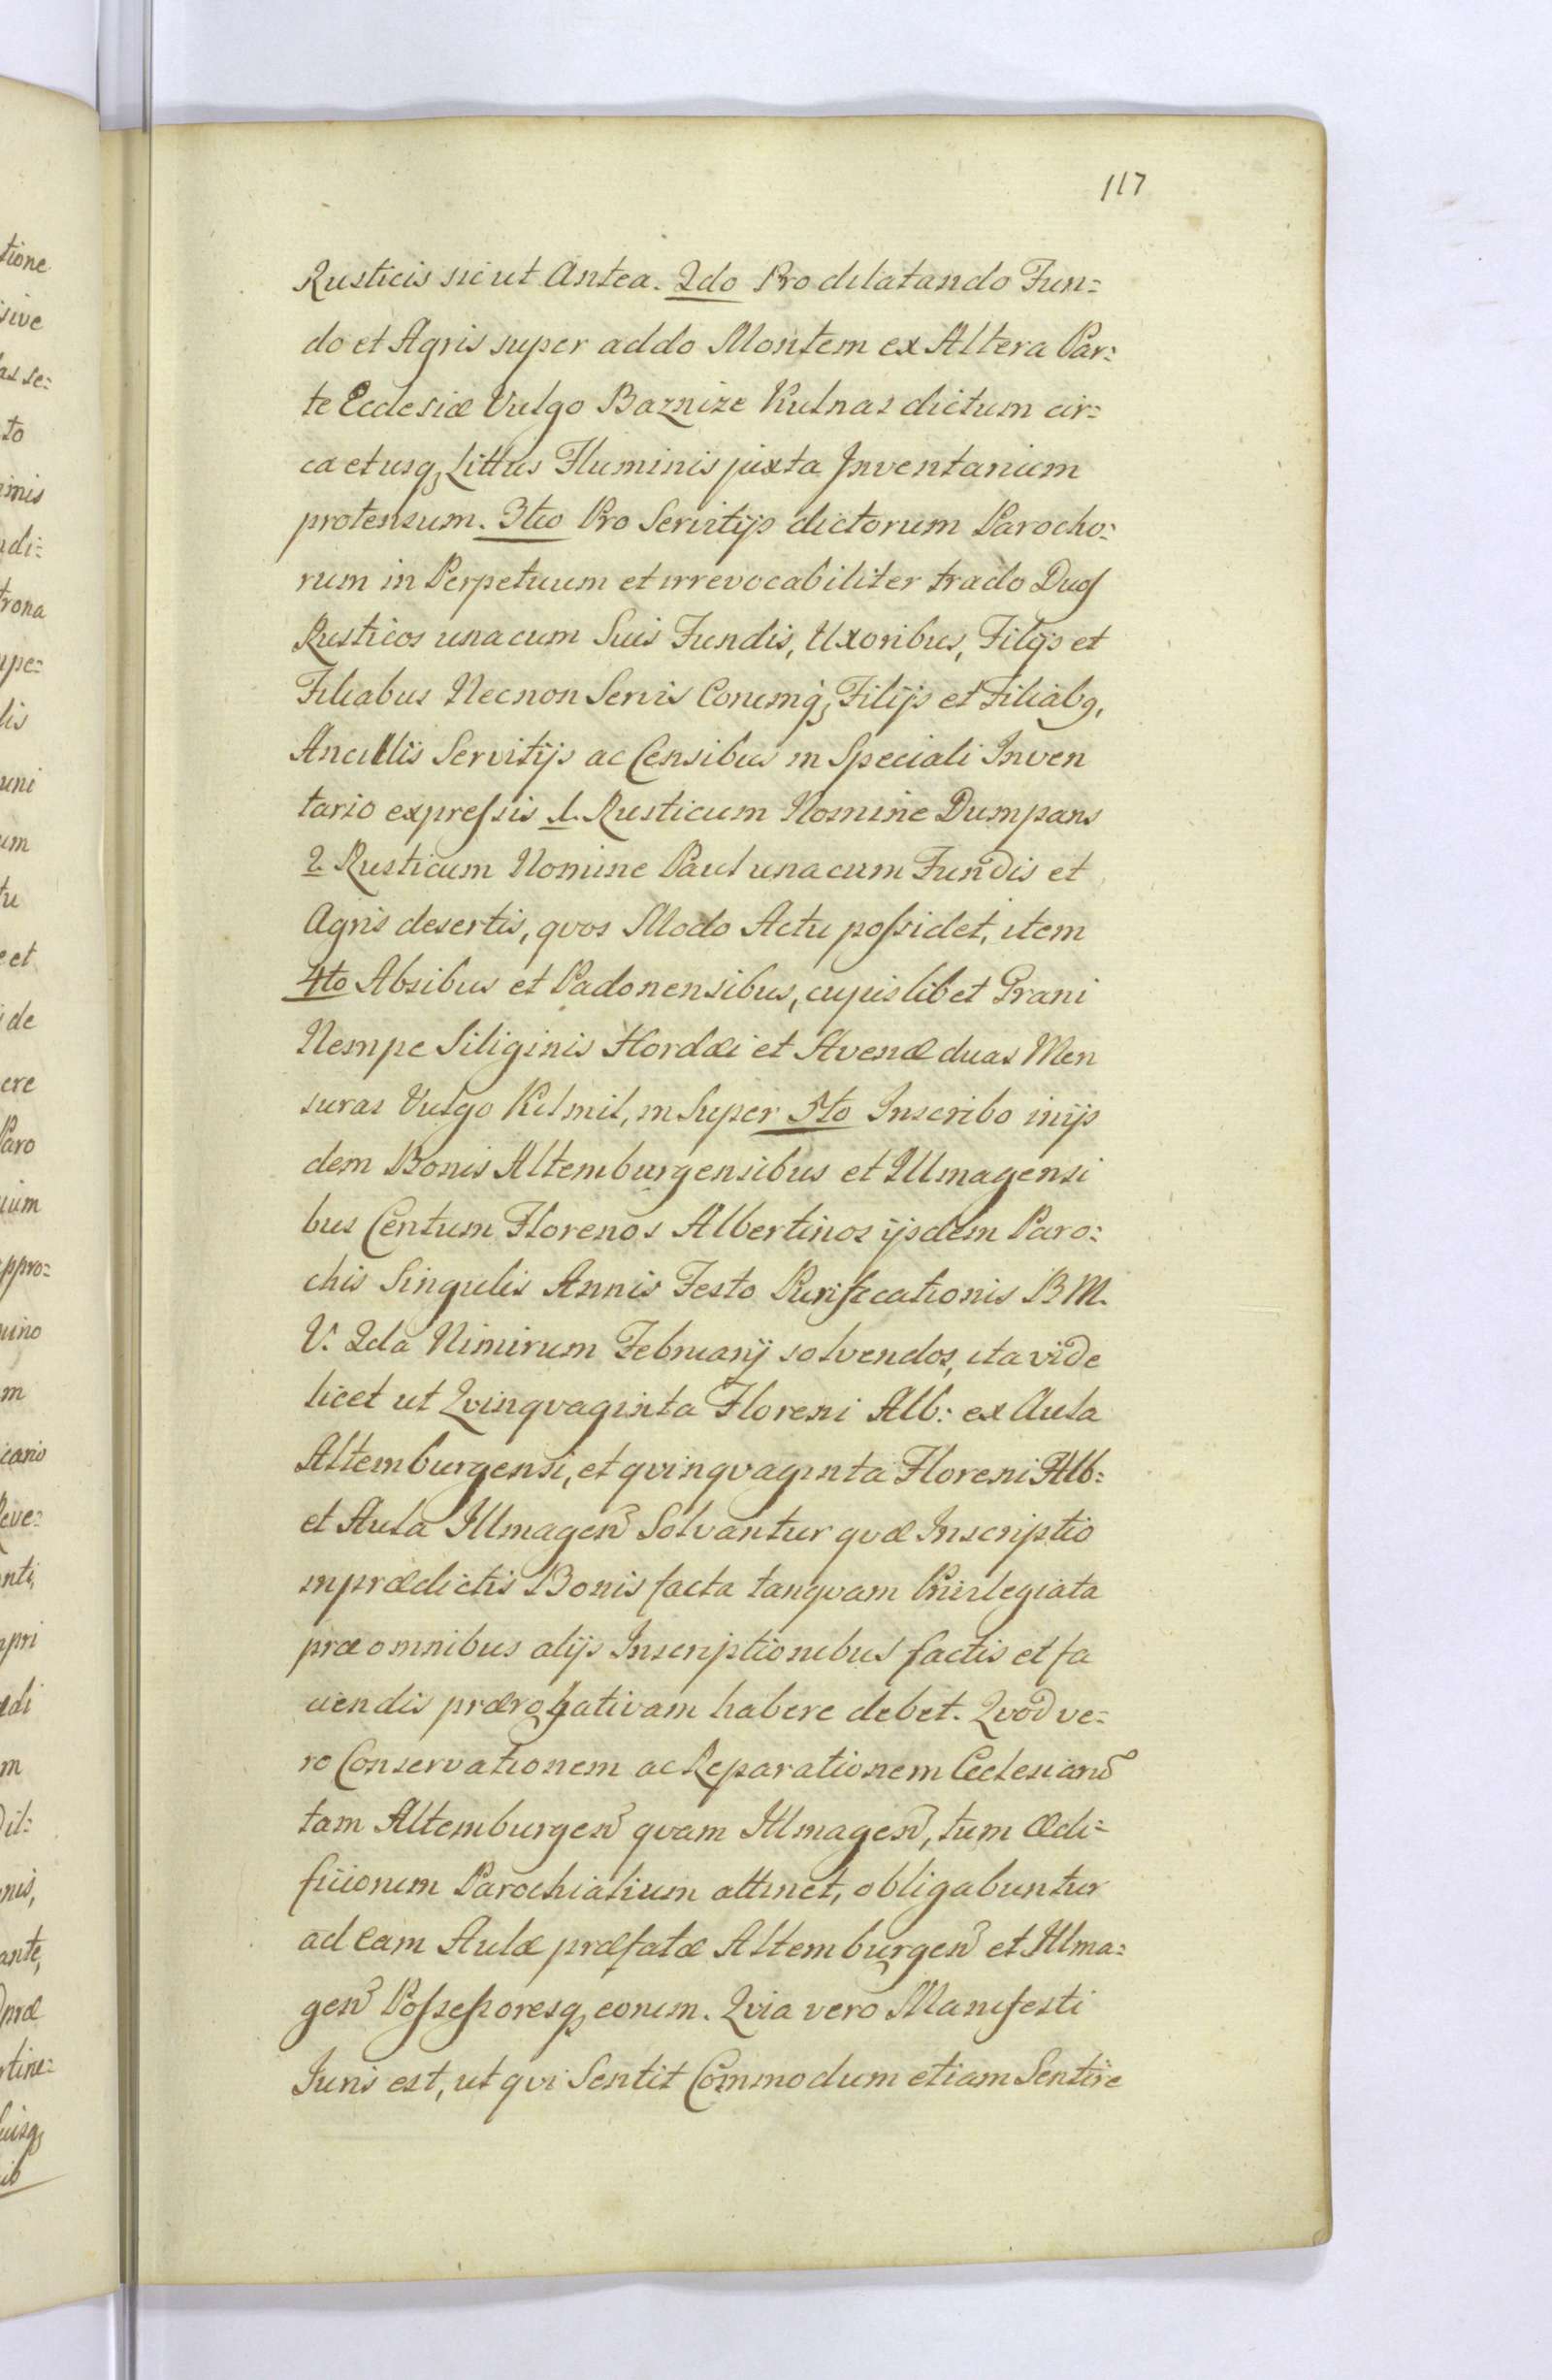 117
Rusticis sicut Antea. 2do Pro dilatando Fun=
do et Agris super addo Montem ex Altera Par=
te Ecclesiæ Vulgo Baznize Kulnas dictum cir=
ca et usq, Littus Fluminis juxta Inventarium
protensum. 3tio Pro Servitijs dictorum Parocho=
rum in Perpetuum et irrevocabiliter trado Duos
Rusticos una cum Suis Fundis, Uxoribus, Filijs et
Filiabus Necnon Servis Eorumq, Filijs et Filiabq,
Ancillis Servitijs ac Censibus in Speciali Inven
tario expressis 1. Rusticum Nomine Dumpans
2. Rusticum Nomine Paul una cum Fundis et
Agris desertis, qvos Modo Actu possidet, item
4to Absibus et Padonensibus, cujuslibet Grani
Nempe Siliginis Hordæi et Avenæ duas Men
suras Vulgo Kulmit, in Super 5to Inscribo in ijs
dem Bonis Altemburgensibus et Illmagensi
bus Centum Florenos Albertinos ijsdem Paro=
chis Singulis Annis Festo Purificationis B M.
V. 2da Nimirum Februarij solvendos, ita vide
licet ut Qvinqvaginta Floreni Alb: ex Aula
Altemburgensi, et qvinqvaginta Floreni Alb:
et Aula Illmagen Solvantur qvæ Inscriptio
in prædictis Bonis facta tanqvam Privilegiata
præ omnibus alijs Inscriptionibus factis et fa
ciendis prærogativam habere debet. Qvod ve=
ro Conservationem ac Reparationem Ecclesiarū
tam Altemburgen qvam Illmagen, tum ædi=
ficiorum Parochialium attinet, obligabuntur
ad eam Aulæ præfatæ Altemburgen et Illma=
gen Possessoresq, eorum. Qvia vero Manifesti
Juris est, ut qvi Sentit Commodum etiam Sentire
tione
sive
as se=
to
imis
adi=
trona
upe=
lis
uni
um
tu
et
de
ere
Paro
ium
ppro=
uino
m
icario
Reve=
nti,
pri
edi
m
Dil=
nis,
ante,
Dmæ
rtine=
uisq,